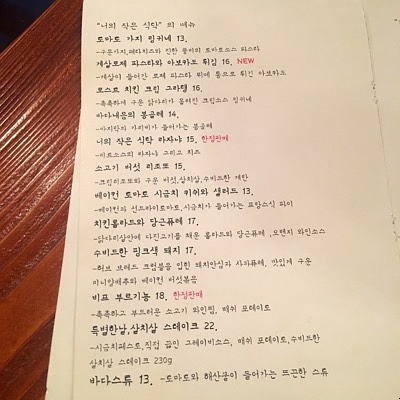 "너의 작은 식탁" 의 메뉴
토마토 가지 링귀네 13.
-구운가지,페타치즈와 진한 풍미의 토마토소스 파스타
게살로제 파스타와 아보카도 튀김 16. NEW
-게살이 들어간 로제 파스타 위에 통으로 튀긴 아보카도
로스트 치킨 크림 그라탱 16.
-촉촉하게 구운 닭다리가 올려진 크림소스 링귀네
바다내음의 봉골레 14.
-바지락과 가리비가 들어가는 봉골레
너의 작은 식탁 라자냐 15. 한정판매
-미트소스의 라자냐 그리고 치즈
소고기 버섯 리조또 15.
-크림리조또와 구운 버섯,살치살,수비드한 계란
베이컨 토마토 시금치 키쉬와 샐러드 13.
-베이컨과 선드라이토마토,시금치가 들어가는 프랑스식 파이
치킨롤라드와 당근퓨레 17.
-닭다리살안에 다진고기를 채운 롤라드와 당근퓨레 ,오렌지 와인소스
수비드한 핑크색 돼지 17.
-허브 브레드 크럼블을 입힌 돼지안심과 사과퓨레, 맛있게 구운
미니양배추와 베이컨 볶음
비프 부르기뇽 18. 한정판매
-촉촉하고 부드러운 소고기 와인찜, 매쉬 포테이토
특별한날,살치살 스테이크 22.
-시금치페스토,직접 끓인 그레이비소스, 매쉬 포테이토,수비드한
살치살 스테이크 230g
바다스튜 13. -토마토와 해산물이 들어가는 뜨끈한 스튜